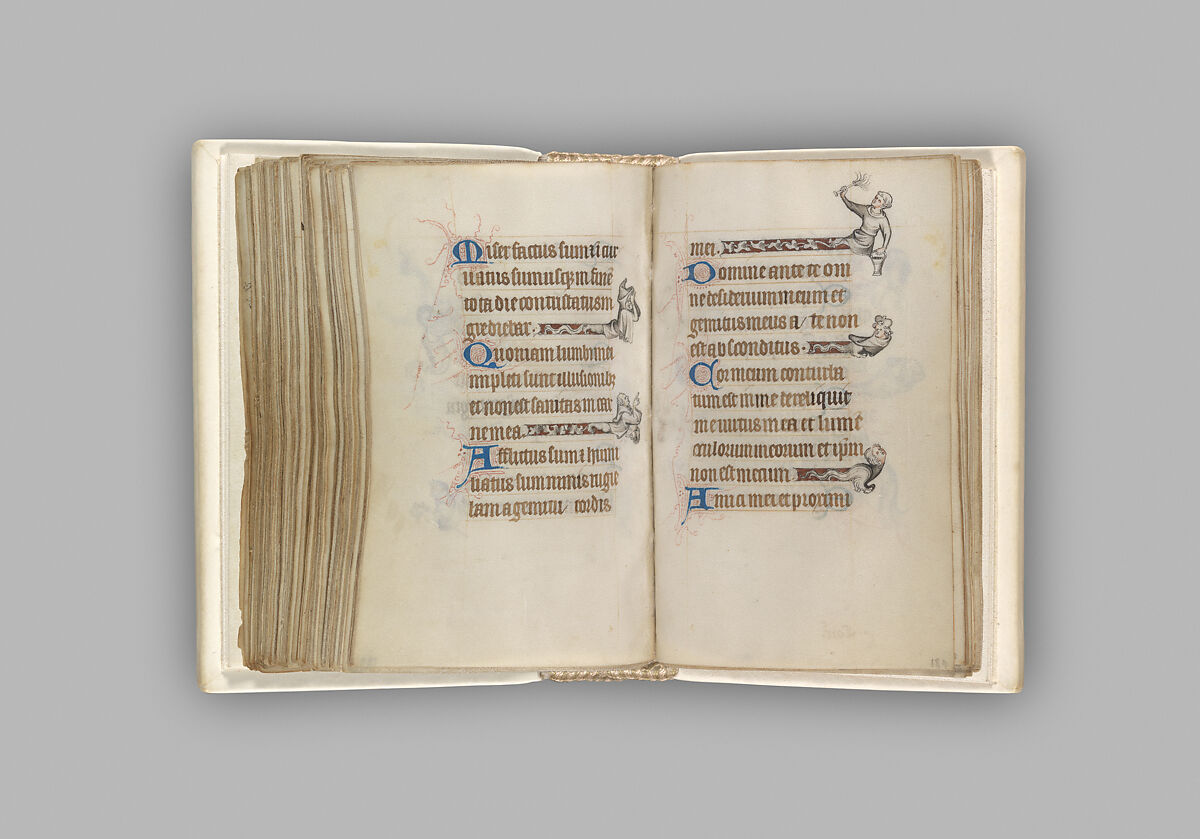 Miser factus sum ⁊ cur
uatus sum usqꝫ in finē
tota die contristatus in
grediebar.
Quoniam lumbi mei
impleti sunt illusionibꝫ
et non est sanitas in car
ne mea.
Afflictus sum ⁊ humi
liatus sum nimis rugie
bam a gemitu cordis
mei.
Domine ante te om
ne desiderium meum et
gemitus meus a te non
est absconditus.
Cor meum conturba
tum est in me dereliquit
me uirtus mea et lumē
oculorum meorum et ip̄m
non est mecum
Amici mei et proximi